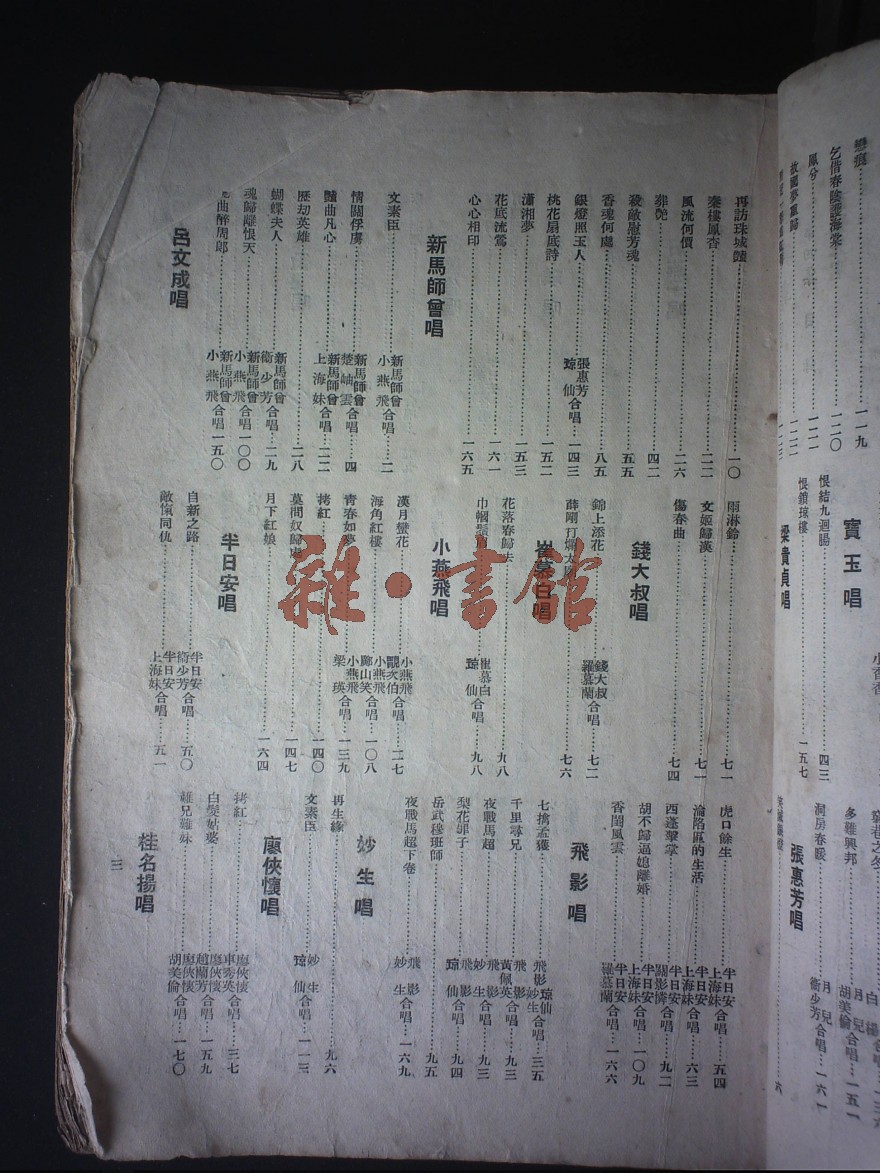 再訪珠城豔……一〇
秦樓鳳杳……二二
風流何價……二六
葬艷……四二
殺敵慰芳魂……五五
香魂何處……八五
銀燈照玉人……張惠芳 琼仙合唱……一四三
桃花扇底詩……一五二
瀟湘夢……一五三
花底流鶯……一六一
心心相印……一六五
新馬師曾唱
文素臣……新馬師曾 小燕飛合唱……二
情關俘虜……新馬師曾 楚岫雲合唱……四
豔曲凡心……新馬師曾 上海妹合唱……二二
歷劫英雄……二八
蝴蝶夫人……新馬師曾 衞少芳合唱……二九
魂歸離恨天……新馬師曾 小燕飛合唱……一〇〇
曲醉周郎……新馬師曾 小燕飛合唱……一五〇
呂文成唱
雨淋鈴……七一
文姬歸漢……七一
傷春曲……七四
錢大叔唱
錦上添花……錢大叔 羅慕蘭合唱……七二
薛剛打爛太……七六
崔慕白唱
花落春歸去……九八
巾幗鬚眉……崔慕白 琼仙合唱……九八
小燕飛唱
漢月蠻花……小燕飛 靚次伯合唱……二七
海角紅樓……小燕飛 鄺山笑合唱……一〇八
青春如夢……小燕飛 梁瑛合唱……一三九
拷紅……一四〇
莫問奴歸處……一四七
月下紅娘……一六四
半日安唱
自新之路……半日安 衞少芳合唱……五〇
敵愾同仇……半日安 上海妹合唱……五一
虎口餘生……半日安 上海妹合唱……五四
淪陷區的生活……半日安 上海妹合唱……六三
西蓬擊掌……半日安 關影憐合唱……九二
胡不歸逼媳離婚……半日安 上海妹合唱……一〇九
香閨風雲……半日安 羅慕蘭合唱……一六六
飛影唱
七擒孟獲……飛影琼仙 妙生合唱……三五
千里尋兄……飛影 黃佩英合唱……九三
夜戰馬超……飛影 妙生合唱……九三
梨花罪子……飛影 琼仙合唱……九四
岳武穆班師……九五
夜戰馬超下卷……飛影 妙生合唱……一六九
妙生唱
再生緣……九六
文素臣……妙生 琼仙合唱……一一三
廖俠懷唱
拷紅……廖俠懷 車秀英合唱……三七
白髮姑婆……廖俠懷 趙蘭芳合唱……一五九
難兄難妹……廖俠懷 胡美倫合唱……一七〇
桂名揚唱
三
雜·書館
戀痕……一一九
乞借春陰護海棠……一二〇
鳳兮……一二一
故國夢重歸……一二二
寶玉唱
恨結九迴腸……四三
恨鎖瓊樓……一五七
梁貴貞唱
多難興邦……月兒 胡美倫合唱……一五一
洞房春暖……月兒 衞少芳合唱……一六一
張惠芳唱